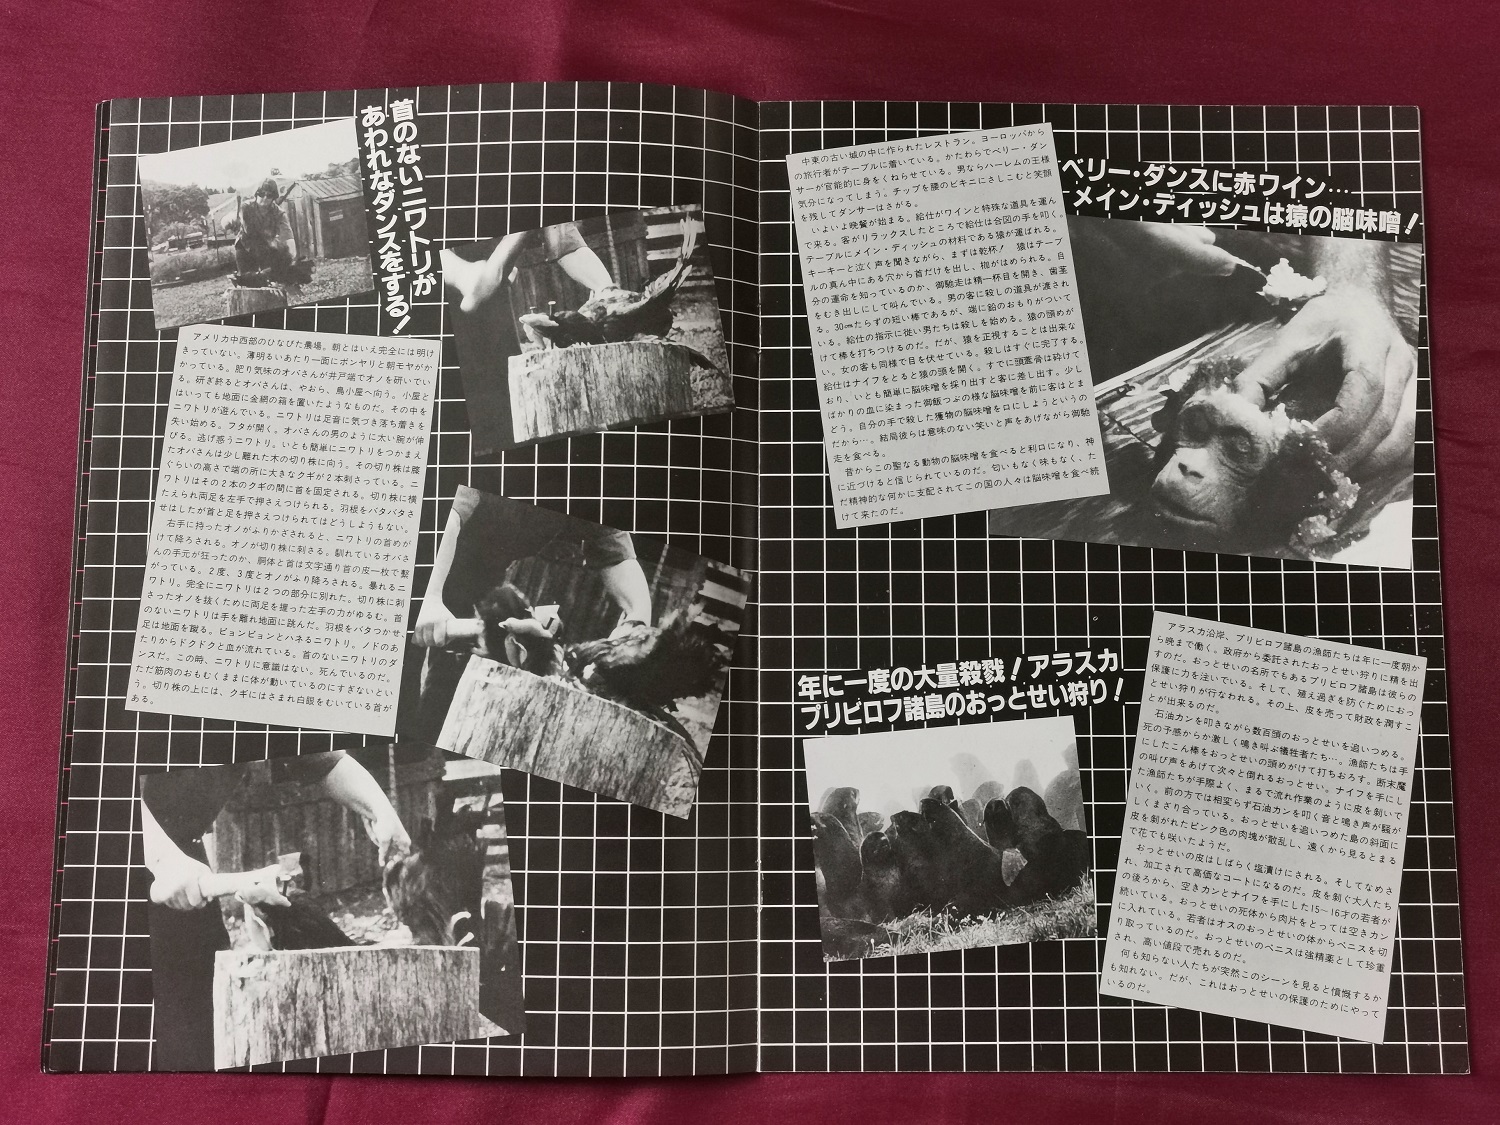 首のないニワトリが
あわれなダンスをする!
アメリカ中西部のひなびた農場。朝とはいえ完全には明け
きっていない。薄明るいあたり一面にボンヤリと朝モヤがか
かっている。肥り気味のオバさんが井戸端でオノを研いでい
る。研ぎ終るとオバさんは、やおら、鳥小屋へ向う。小屋と
はいっても地面に金網の箱を置いたようなものだ。その中を
ニワトリが遊んでいる。ニワトリは足音に気づき落ち着きを
失い始める。フタが開く。オバさんの男のように太い腕が伸
びる。逃げ惑うニワトリ。いとも簡単にニワトリをつかまえ
たオバさんは少し離れた木の切り株に向う。その切り株は膝
ぐらいの高さで端の所に大きなクギが2本刺さっている。ニ
ワトリはその2本のクギの間に首を固定される。切り株に横
たえられ両足を左手で押さえつけられる。羽根をバタバタさ
せはしたが首と足を押さえつけられてはどうしようもない。
右手に持ったオノがふりかざされると、ニワトリの首めが
けて降ろされる。オノが切り株に刺さる。馴れているオバさ
んの手元が狂ったのか、胴体と首は文字通り首の皮一枚で繫
がっている。2度、3度とオノがふり降ろされる。暴れるニ
ワトリ。完全にニワトリは2つの部分に別れた。切り株に刺
さったオノを抜くために両足を握った左手の力がゆるむ。首
のないニワトリは手を離れ地面に跳んだ。羽根をバタつかせ、
足は地面を蹴る。ピョンピョンとハネるニワトリ。ノドのあ
たりからドクドクと血が流れている。首のないニワトリのダ
ンスだ。この時、ニワトリに意識はない。死んでいるのだ。
ただ筋肉のおもむくままに体が動いているのにすぎないとい
う。切り株の上には、クギにはさまれ白眼をむいている首が
ある。
ベリー・ダンスに赤ワイン…
メイン・ディッシュは猿の脳味噌!
中東の古い城の中に作られたレストラン。ヨーロッパから
の旅行者がテーブルに着いている。かたわらでベリー・ダン
サーが官能的に身をくねらせている。男ならハーレムの王様
気分になってしまう。チップを腰のビキニにさしこむと笑顔
を残してダンサーはさがる。
いよいよ晩餐が始まる。給仕がワインと特殊な道具を運ん
で来る。客がリラックスしたところで給仕は合図の手を叩く。
テーブルにメイン・ディッシュの材料である猿が運ばれる。
キーキーと泣く声を聞きながら、まずは乾杯! 猿はテーブ
ルの真ん中にある穴から首だけを出し、枷がはめられる。自
分の運命を知っているのか、御馳走は精一杯目を開き、歯茎
をむき出しにして叫んでいる。男の客に殺しの道具が渡され
る。30㎝たらずの短い棒であるが、端に鉛のおもりがついて
いる。給仕の指示に従い男たちは殺しを始める。猿の頭めが
けて棒を打ちつけるのだ。だが、猿を正視することは出来な
い。女の客も同様で目を伏せている。殺しはすぐに完了する。
給仕はナイフをとると猿の頭を開く。すでに頭蓋骨は砕けて
おり、いとも簡単に脳味噌を採り出すと客に差し出す。少し
ばかりの血に染まった御飯つぶの様な脳味噌を前に客はとま
どう。自分の手で殺した獲物の脳味噌を口にしようというの
だから…。結局彼らは意味のない笑いと声をあげながら御馳
走を食べる。
昔からこの聖なる動物の脳味噌を食べると利口になり、神
に近づけると信じられているのだ。匂いもなく味もなく、た
だ精神的な何かに支配されてこの国の人々は脳味噌を食べ続
けて来たのだ。
年に一度の大量殺戮!アラスカ
プリビロフ諸島のおっとせい狩り!
アラスカ沿岸、プリビロフ諸島の漁師たちは年に一度朝か
ら晩まで働く。政府から委託されたおっとせい狩りに精を出
すのだ。おっとせいの名所でもあるプリビロフ諸島は彼らの
保護に力を注いでいる。そして、殖え過ぎを防ぐためにおっ
とせい狩りが行なわれる。その上、皮を売って財政を潤すこ
とが出来るのだ。
石油カンを叩きながら数百頭のおっとせいを追いつめる。
死の予感からか激しく鳴き叫ぶ犠牲者たち…。漁師たちは手
にしたこん棒をおっとせいの頭めがけて打ちおろす。断末魔
の叫び声をあげて次々と倒れるおっとせい。ナイフを手にし
た漁師たちが手際よく、まるで流れ作業のように皮を剝いで
いく。前の方では相変らず石油カンを叩く音と鳴き声が騒が
しくまざり合っている。おっとせいを追いつめた島の斜面に
皮を剝がれたピンク色の肉塊が散乱し、遠くから見るとまる
で花でも咲いたようだ。
おっとせいの皮はしばらく塩漬けにされる。そしてなめさ
れ、加工されて高価なコートになるのだ。皮を剝ぐ大人たち
の後ろから、空きカンとナイフを手にした15〜16才の若者が
続いている。おっとせいの死体から肉片をとっては空きカン
に入れている。若者はオスのおっとせいの体からペニスを切
り取っているのだ。おっとせいのペニスは強精薬として珍重
され、高い値段で売れるのだ。
何も知らない人たちが突然このシーンを見ると憤慨するか
も知れない。だが、これはおっとせいの保護のためにやって
いるのだ。